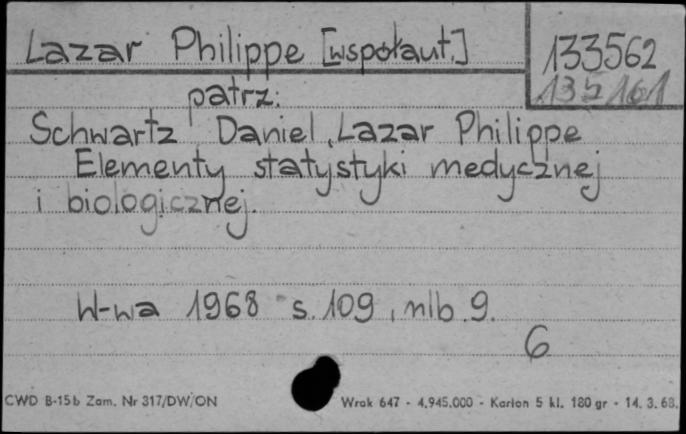 Lazar Philippe [współaut.]
133562
135161
patrz:
Schwartz Daniel, Lazar Philippe
Elementy statystyki medycznej
i biologicznej.
W-wa 1968 s. 109, nlb. 9.
6
CWD B-15b Zam. Nr 317/DW/ON Wrak 647 - 4.945.000 - Karton 5 kl. 180 gr - 14. 3. 68.